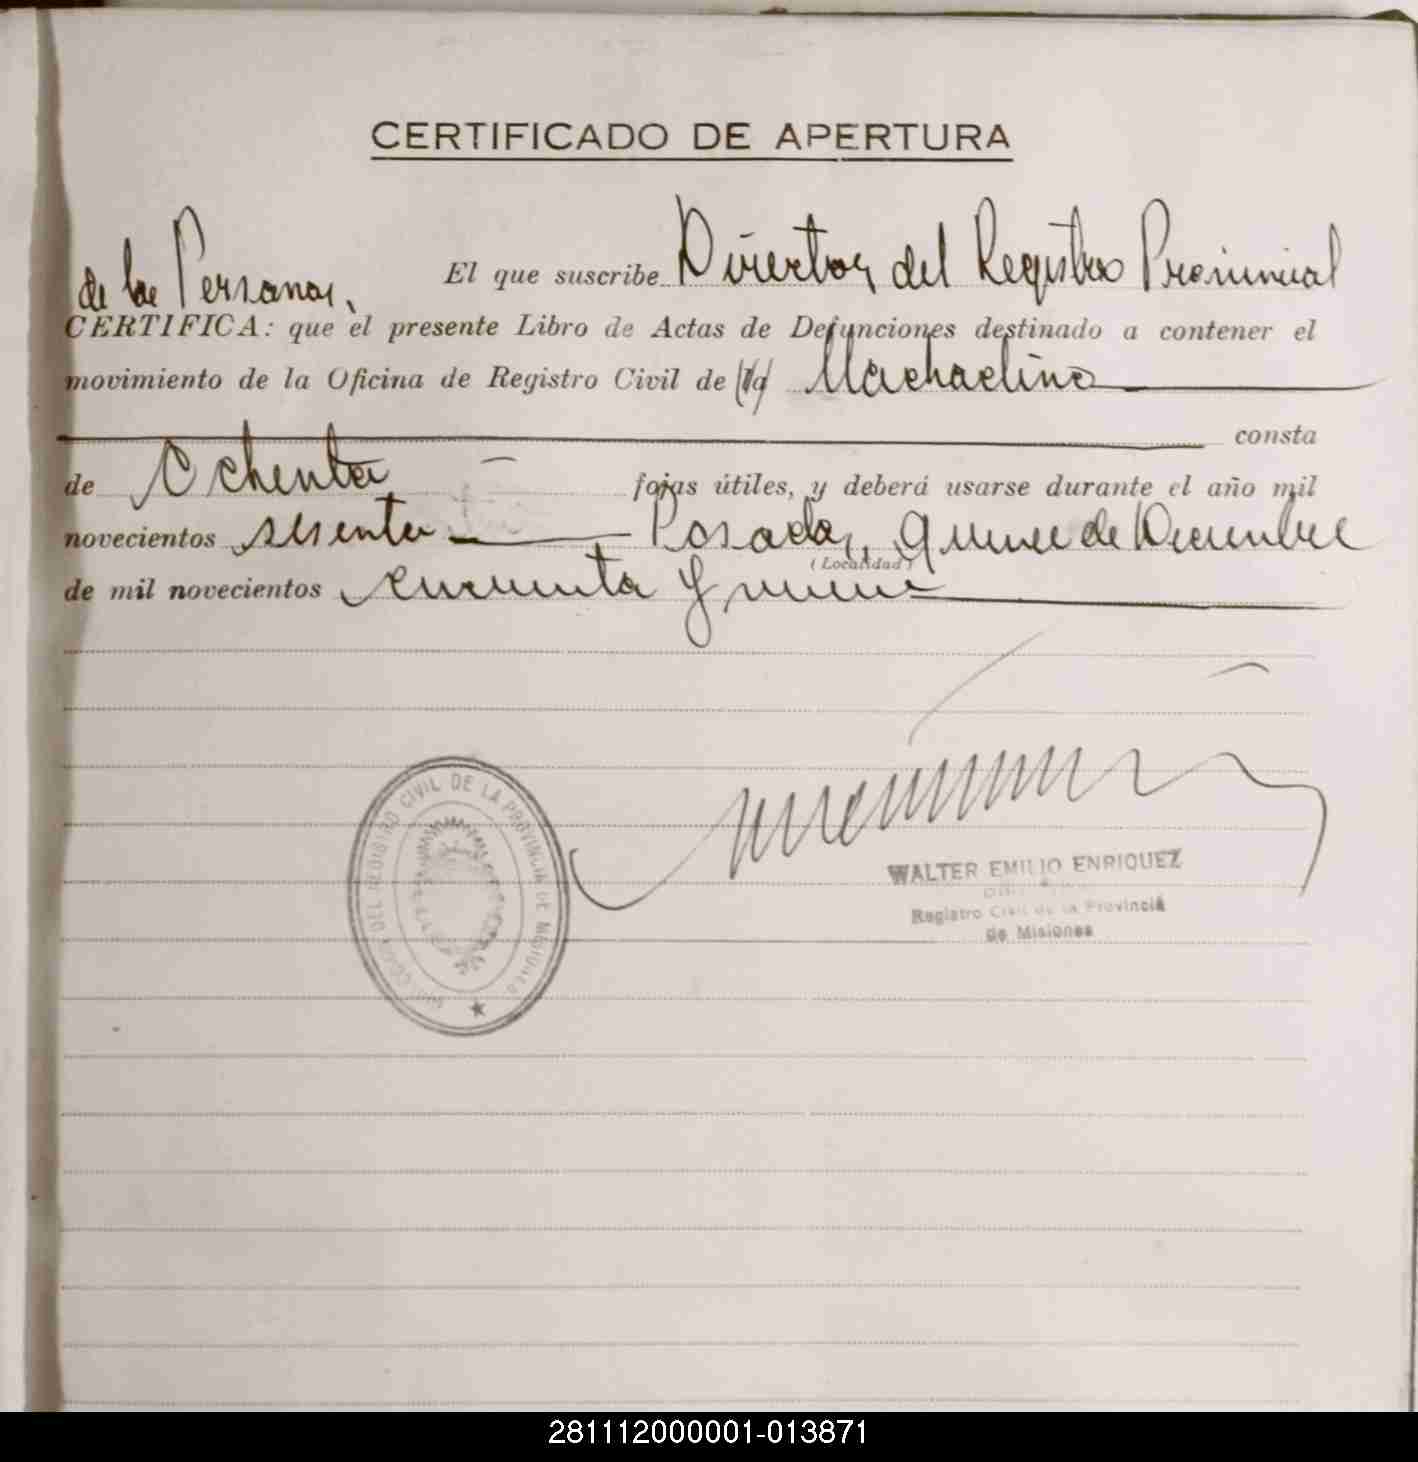 CERTIFICADO DE APERTURA
El que suscribe Director del Registro Provincial
de las Personas,
CERTIFICA: que el presente Libro de Actas de Defunciones destinado a contener el
movimiento de la Oficina de Registro Civil de
consta
de Ochenta fojas útiles, y deberá usarse durante el año mil
novecientos sesenta Posadas, quince de Diciembre
(Localidad)
de mil novecientos cincuenta y nueve
DEL REGISTRO CIVIL DE LA PROVINCIA DE MISIONES
WALTER EMILIO ENRIQUEZ
Registro Civil de la Provincia
de Misiones
281112000001-013871